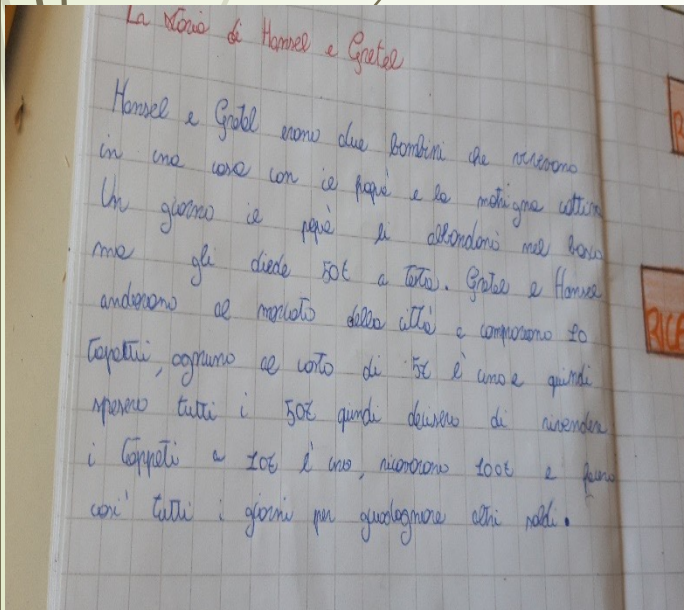 La storia di Hansel e Gretel
Hansel e Gretel erano due bambini che vivevano
in una casa con il papà e la matrigna cattiva
Un giorno il papà li abbandonò nel bosco
ma gli diede 50€ a testa. Gretel e Hansel
andarono al mercato della città e comprarono 10
Tapetti, ognuno al costo di 5€ l'uno e quindi
spesero tutti i 50€ quindi decisero di rivendere
i Tappeti a 10€ l'uno, ricavarono 100€ e fecero
così tutti i giorni per guadagnare altri soldi.